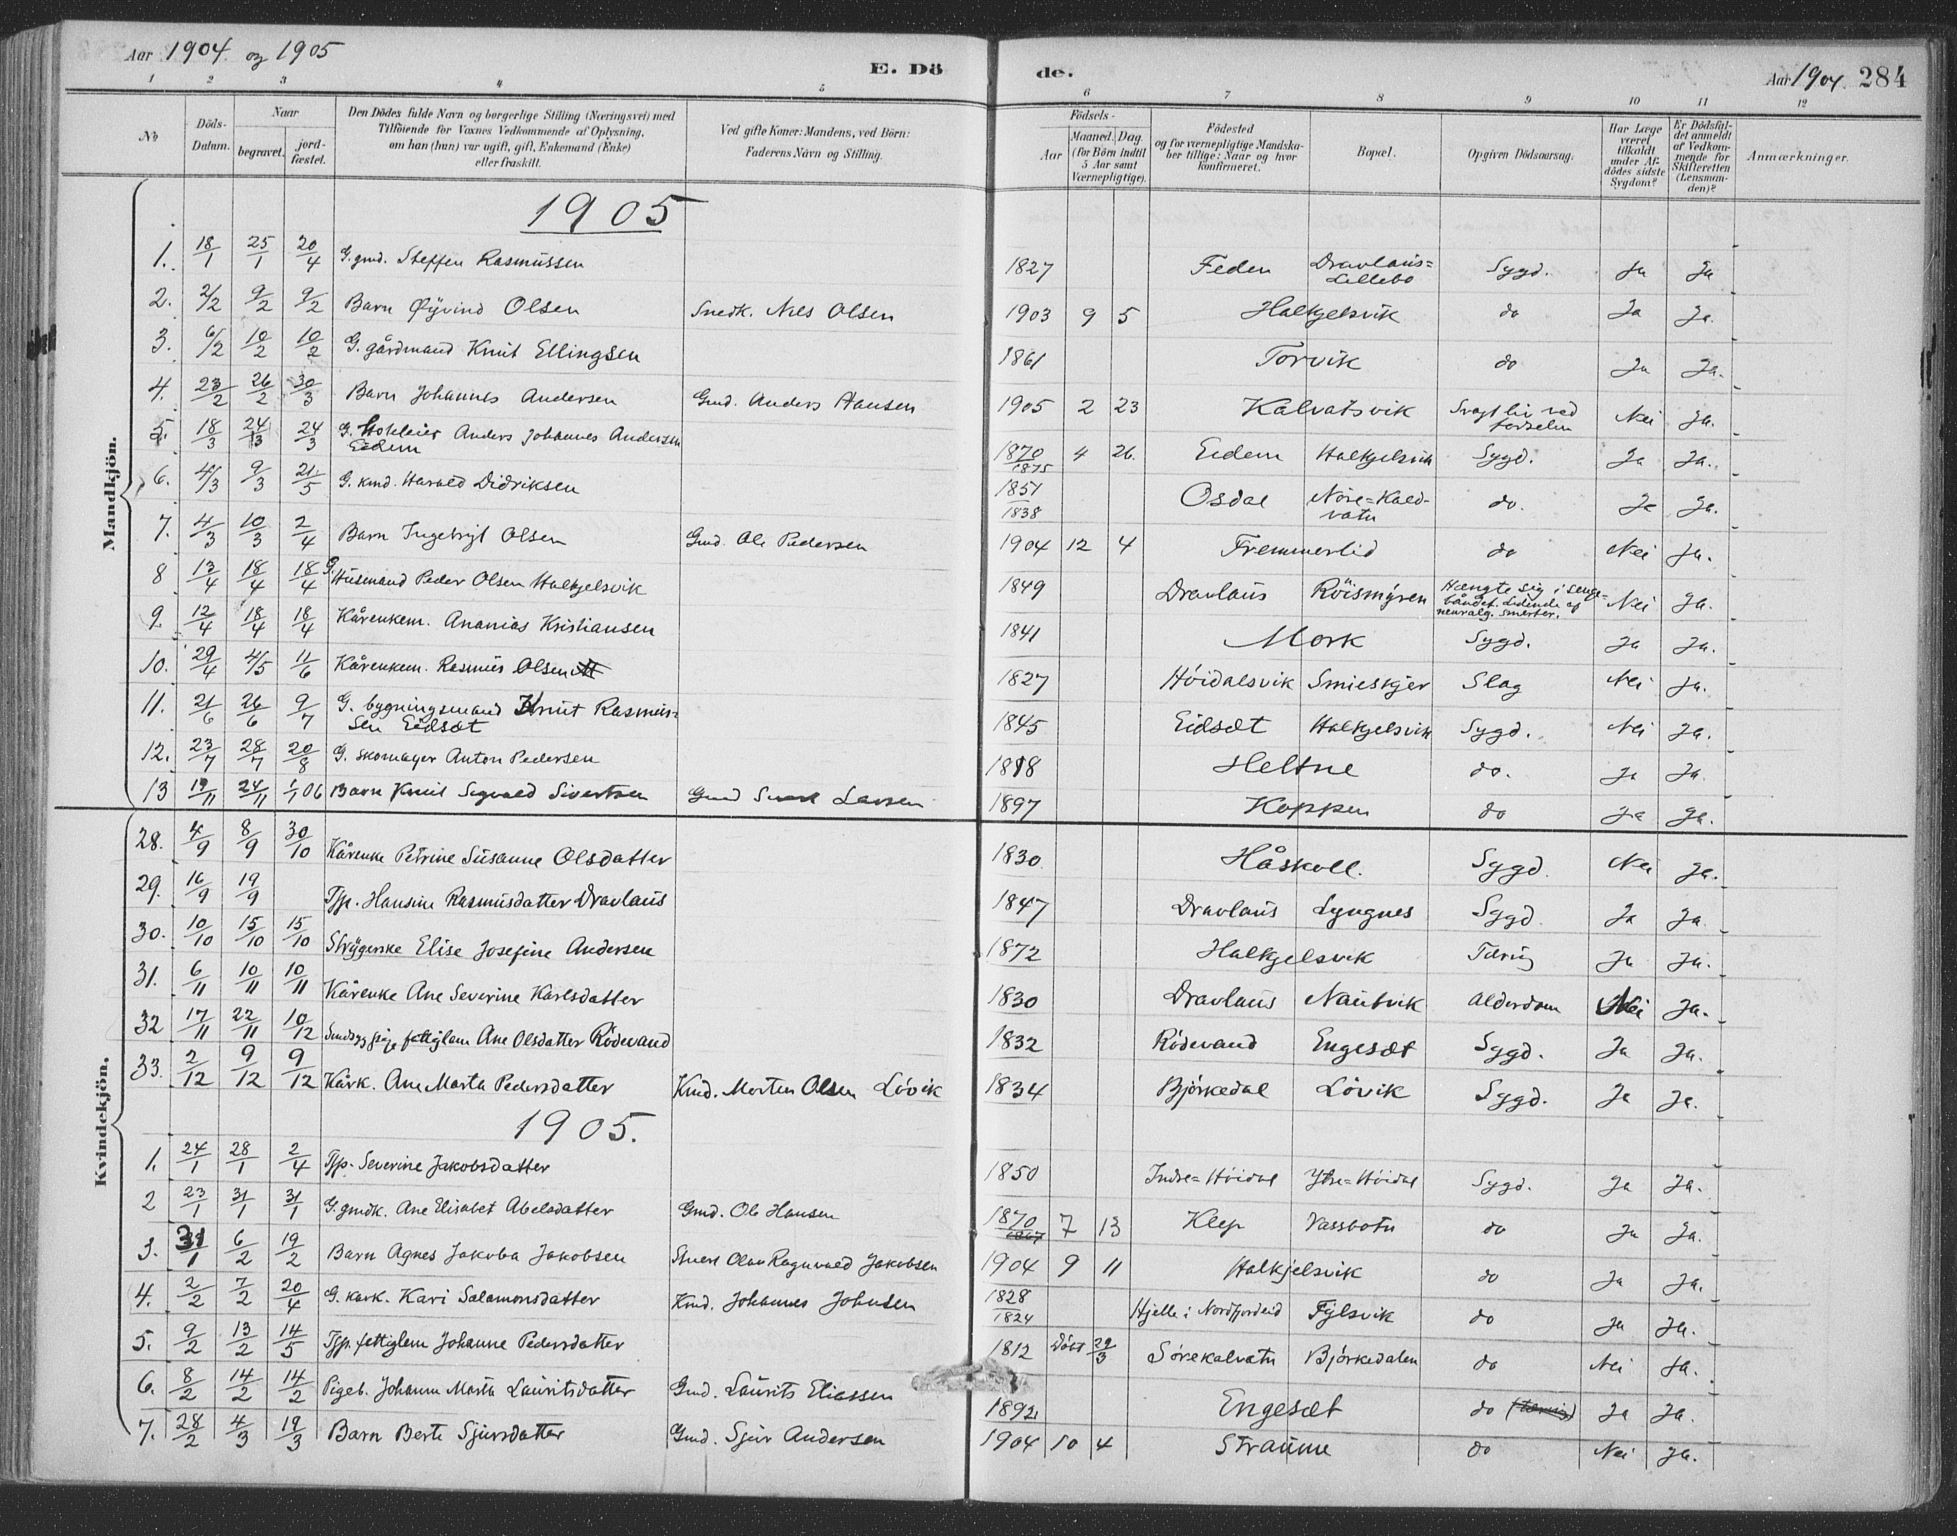 Aar 1904 og 1905
E. Dö
de.
Aar 1904. 284
1 2 3 4 5 6 7 8 9 10 11 12
No
Döds-Datum.
Naar
begravet.
jord-fæstet.
Den Dödes fulde Navn og borgerlige Stilling (Næringsvei) med
Tilföiende for Voxnes Vedkommende af Oplysning,
om han (hun) var ugift, gift, Enkemand (Enke)
eller fraskilt.
Ved gifte Koner: Mandens, ved Börn:
Faderens Navn og Stilling.
Födsels-
Aar
Maaned. Dag
(for Börn indtil
5 Aar samt
Værnepligtige).
Födested
og for værnepligtige Mandska-
ber tillige: Naar og hvor
konfirmeret.
Bopæl.
Opgiven Dödsaarsag.
Har Læge
været
tilkaldt
under Af-
dödes sidste
Sygdom?
Er Dödsfal-
det anmeldt
af Vedkom-
mende for
Skifteretten
(Lensman-
den)?
Anmærkninger.
Mandkjön.
1905
1. 18/1 25/1 20/4 G. gmd. Steffen Rasmussen 1827 Feden Dravlaus=Lillebo Sygd. Ja Ja
2. 2/2 9/2 9/2 Barn Øyvind Olsen Snedk. Nils Olsen 1903 9 5 Halkjelsvik do Ja Ja.
3. 6/2 10/2 10/2 G. gårdmand Knut Ellingsen 1861 Torvik do Ja Ja.
4. 23/2 26/2 30/3 Barn Johannes Andersen Gmd. Anders Hansen 1905 2 23 Kalvatsvik Svagt liv ved fødselen Nei Ja.
5. 18/3 24/3 24/3 G. Anders Johannes Andersen Eidem 1870/1875 4 26 Eidem Halkjelsvik Sygd. Ja Ja.
6. 4/3 9/3 21/5 G. kmd. Harald Didriksen 1851/1838 Osdal Nore=Kaldvatn do. Ja Ja.
7. 4/3 10/3 2/4 Barn Ingebrigt Olsen Gmd. Ole Pedersen 1904 12 4 Fremmerlid do Nei Ja.
8 13/4 18/4 18/4 G. Husmand Peder Olsen Halkjelsvik 1849 Dravlaus Röismyren Hængte sig i senge-båndet. Lidende af neuralg. smerter. Nei Ja.
9. 12/4 18/4 18/4 Kårenkem. Ananias Kristiansen 1841 Mork Sygd. Ja Ja.
10. 29/4 4/5 11/6 Kårenkem. Rasmus Olsen 1827 Höidalsvik Smieskjer Slag Nei Ja.
11. 21/6 26/6 9/7 G. bygningsmand Knut Rasmus=sen Eidsæt 1845 Eidsæt Halkjelsvik Sygd. Nei Ja.
12. 23/7 28/7 20/8 G. skomager Anton Pedersen 1818 Heltne do. Ja Ja.
13 19/11 24/11 1/1 06 Barn Knut Sigvald Sivertsen Gmd Larsen 1897 Koppen do Ja Ja.
Kvindekjön.
28. 4/9 8/9 30/10 Kårenke Petrine Susanne Olsdatter 1830 Håskoll. Sygd. Nei Ja.
29. 16/9 19/9 Tjp. Hansine Rasmusdatter Dravlaus 1847 Dravlaus Lyngnes Sygd. Ja Ja.
30. 10/10 15/10 15/10 Strygerske Elise Josefine Andersen 1872 Halkjelsvik Tæring Ja Ja.
31. 6/11 10/11 10/11 Kårenke Ane Severine Karlsdatter 1830 Dravlaus Nautvik Alderdom Nei Ja.
32 17/11 22/11 10/12 fattiglem Ane Olsdatter Rödevand 1832 Rödevand Engesæt Sygd. Ja Ja.
33. 2/12 9/12 9/12 Kårk. Ane Marta Pedersdatter Kmd. Morten Olsen Lövik 1834 Björkedal Lövik Sygd. Ja Ja.
1905.
1. 24/1 28/1 2/4 Tjp. Severine Jakobsdatter 1850 Indre=Höidal Ytre=Höidal Sygd. Ja Ja.
2 23/1 31/1 31/1 G. gmdk. Ane Elisabet Abelsdatter Gmd. Ole Hansen 1870/1867 7 13 Klep Vassbotn do Ja Ja.
3. 31/1 6/2 19/2 Barn Agnes Jakoba Jakobsen Olav Ragnvald Jakobsen 1904 9 11 Halkjelsvik do Ja Ja.
4. 2/2 7/2 20/4 G. kark. Kari Salamonsdatter Kmd. Johannes Johnsen 1828/1824 Hjelle i Nordfjordeid Fylsvik do Ja Ja.
5. 9/2 13/2 14/5 Tjp. fattiglem Johanne Pedersdatter 1812 Döbt 29/3 Sörekalvatn Björkedalen do Nei Ja.
6. 8/2 14/2 14/2 Pigeb. Johanne Marta Lauritsdatter Gmd. Laurits Eliassen 1892 Engesæt do (tæring) Ja Ja.
7. 28/2 4/3 19/3 Barn Berte Sjursdatter Gmd. Sjur Andersen 1904 10 4 Straume do Nei Ja.